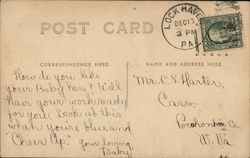 POST CARD
LOCK HAVEN
DEC 15
3 PM
PA
CORRESPONDENCE HERE
NAME AND ADDRESS HERE
How do you like
your Baby? I'll
have your work ready
for you. Look at this
when you're blue and
"Cheer Up."
your loving
Baby.
Mr. C. S. Harter,
Cass,
Pocahontas Co.
W. Va.